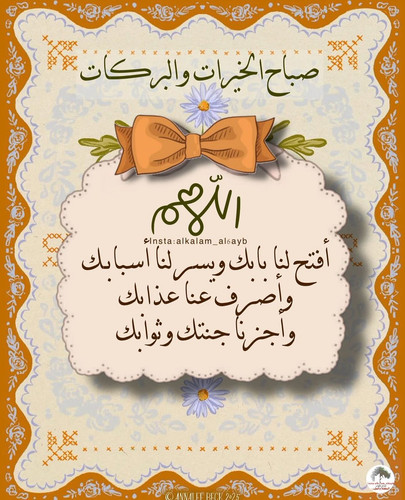 صباح الخيرات والبركات
اللهم
Insta:alkalam_al6ayb
أفتح لنا بابك ويسر لنا أسبابك
وأصرف عنا عذابك
وأجزنا جنتك وثوابك
© ANNALEE BECK 2025